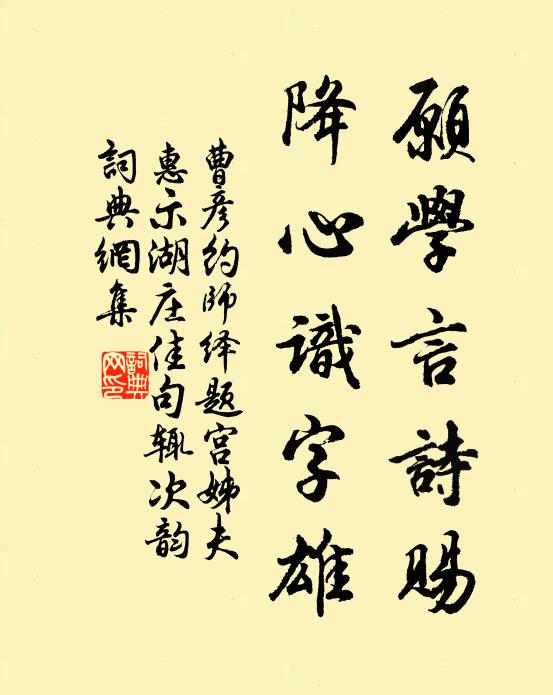 願學言詩賜
降心識字雄
曹彦約師绎题宫姊夫
惠示湖庄佳句辄次韵
詞典網集
詞典
网印